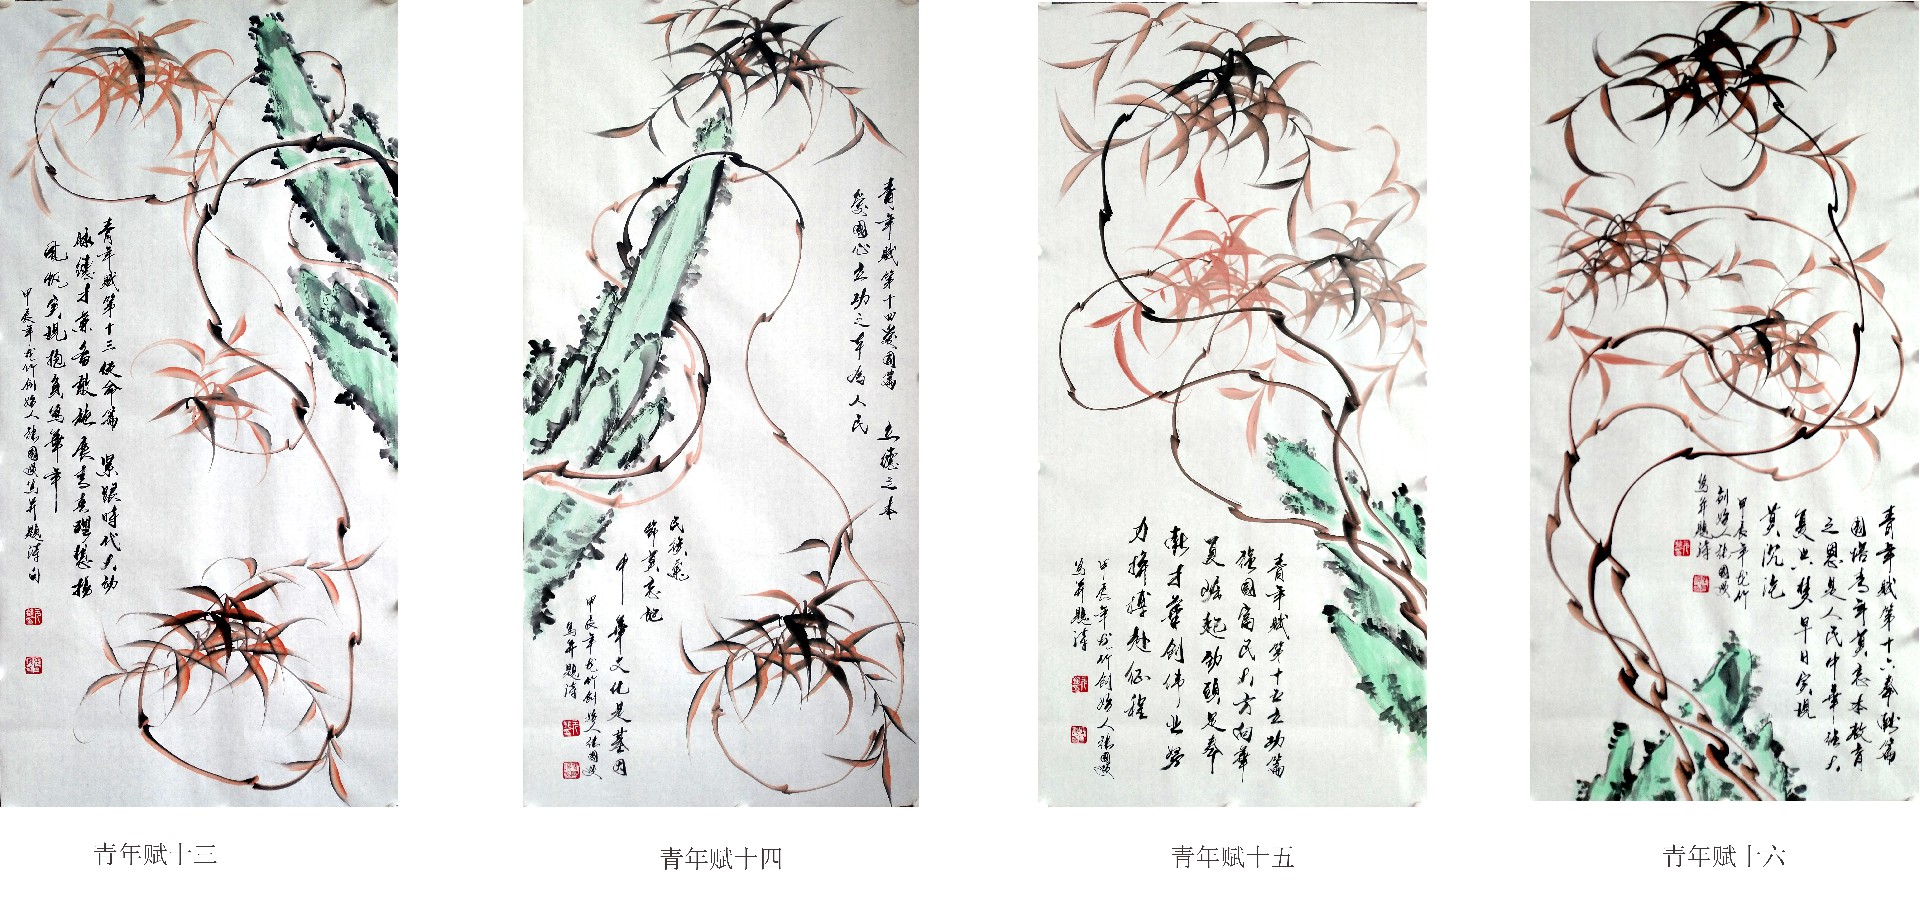 青年赋第十三使命篇 紧跟时代大功
脉德才兼备敢施展青春理想扬
风帆实现抱负写华年
甲辰年龙竹创始人张国
写并题诗句
青年赋第十四爱国篇 立德之本
爱国心立功之本为人民
民族
锦黄志旭
中华文化是基因
甲辰年龙竹创始人张国
写并题诗
青年赋第十五立功篇
强国富民大方向华
夏崛起劲头足奉
献才华创伟业努
力拼搏赴征程
甲辰年龙竹创始人张国
写并题诗
青年赋第十六奉献篇
国培青年莫忘本教育
之恩是人民中华强大
复兴梦早日实现
莫沉
甲辰年龙竹
创始人张国
写并题诗
青年赋十三
青年赋十四
青年赋十五
青年赋十六